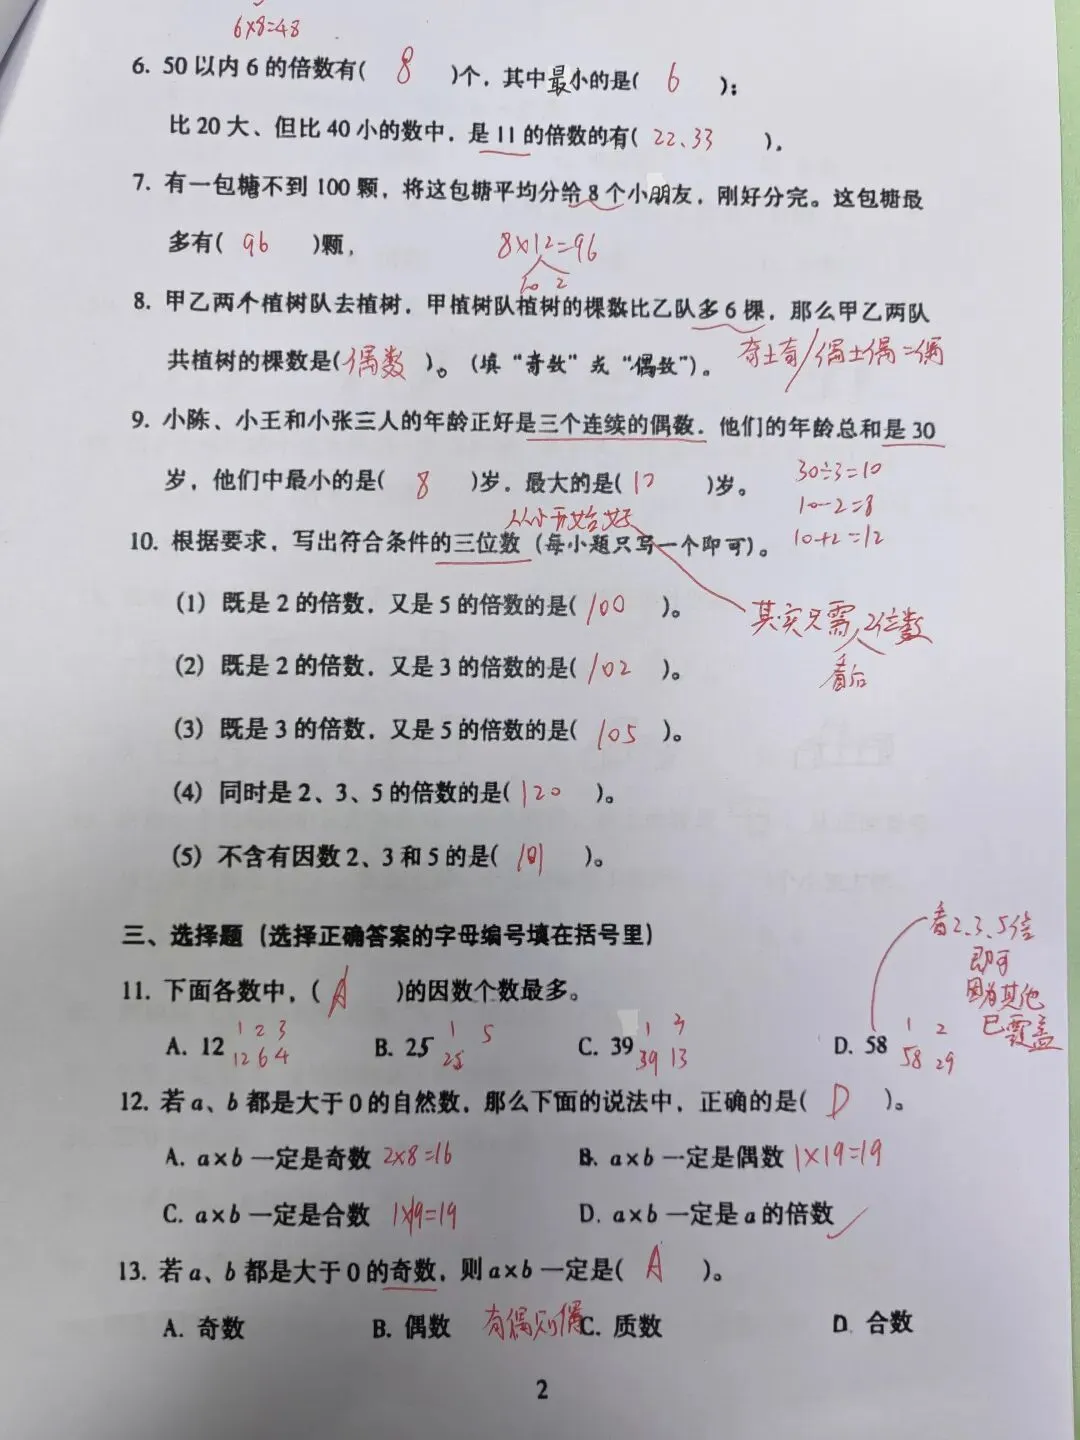 6×8=48
6. 50以内6的倍数有( 8 )个，其中最小的是( 6 )；
比20大、但比40小的数中，是11的倍数的有( 22、33 )，
7. 有一包糖不到100颗，将这包糖平均分给8个小朋友，刚好分完。这包糖最
多有( 96 )颗，
8×12=96
10 2
8. 甲乙两个植树队去植树，甲植树队植树的棵数比乙队多6棵，那么甲乙两队
共植树的棵数是(偶数 )。(填“奇数”或“偶数”)。
奇±奇/偶±偶=偶
9. 小陈、小王和小张三人的年龄正好是三个连续的偶数．他们的年龄总和是30
岁，他们中最小的是( 8 )岁．最大的是( 12 )岁。
30÷3=10
10-2=8
10+2=12
从小开始好
10. 根据要求，写出符合条件的三位数（每小题只写一个即可)。
(1) 既是2的倍数，又是5的倍数的是( 100 )。
其实只需2位数
看后
(2) 既是2的倍数，又是3的倍数的是( 102 )。
(3) 既是3的倍数，又是5的倍数的是( 105 )。
(4) 同时是2、3、5的倍数的是( 120 )。
(5) 不含有因数2、3和5的是( 101 )。
三、选择题（选择正确答案的字母编号填在括号里）
看2、3、5倍
即可
因为其他
已覆盖
11. 下面各数中，( A )的因数个数最多。
A. 12 1 2 3 B. 25 1 5 C. 39 1 3 D. 58 1 2
12 6 4 25 39 13 58 29
12. 若a、b都是大于0的自然数，那么下面的说法中，正确的是( D )。
A. a×b一定是奇数 2×8=16 B. a×b一定是偶数 1×19=19
C. a×b一定是合数 1×19=19 D. a×b一定是a的倍数
13. 若a、b都是大于0的奇数，则a×b一定是( A )。
A. 奇数 B. 偶数 有偶则偶 C. 质数 D. 合数
2